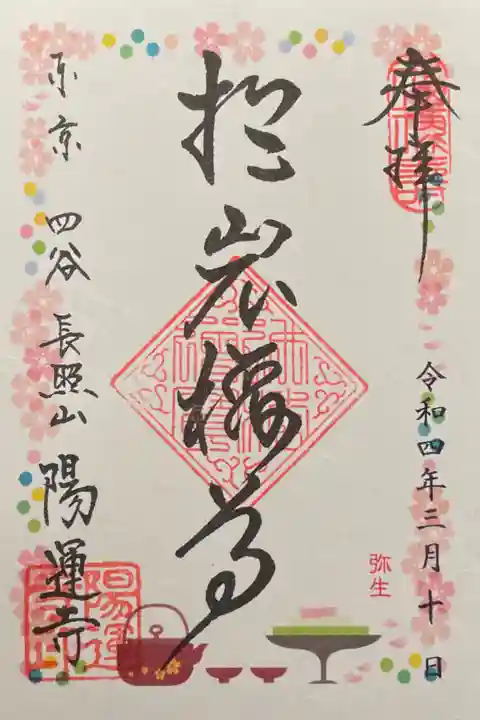 奉拝
令和四年三月十日
弥生
於岩稲荷
東京 四谷 長照山 陽運寺